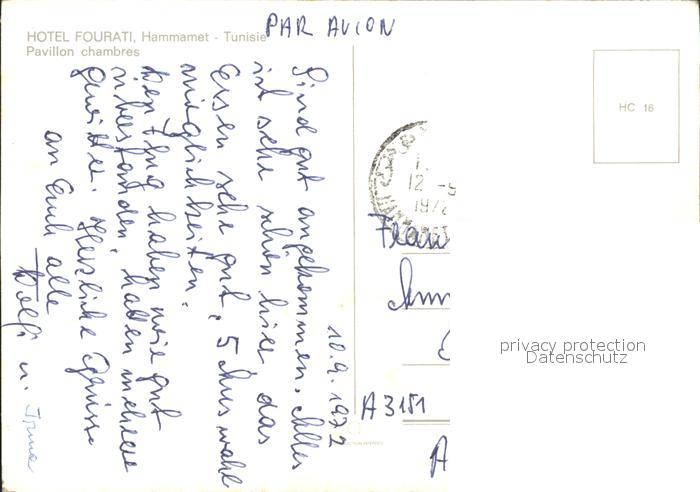 HOTEL FOURATI, Hammamet - Tunisie
Pavillon chambres
PAR AVION
HC 16
12 -9
1972
10.9.1972
Sind gut angekommen. Alles
ist sehr schön hier, das
Essen sehr gut, 5 Auswahl
möglichkeiten.
Den Flug haben wir gut
überstanden, hatten mehrere
Gewitter. Herzliche Grüsse
an Euch alle
Dolfi u. Irma
Frau
A 3151
A
privacy protection
Datenschutz